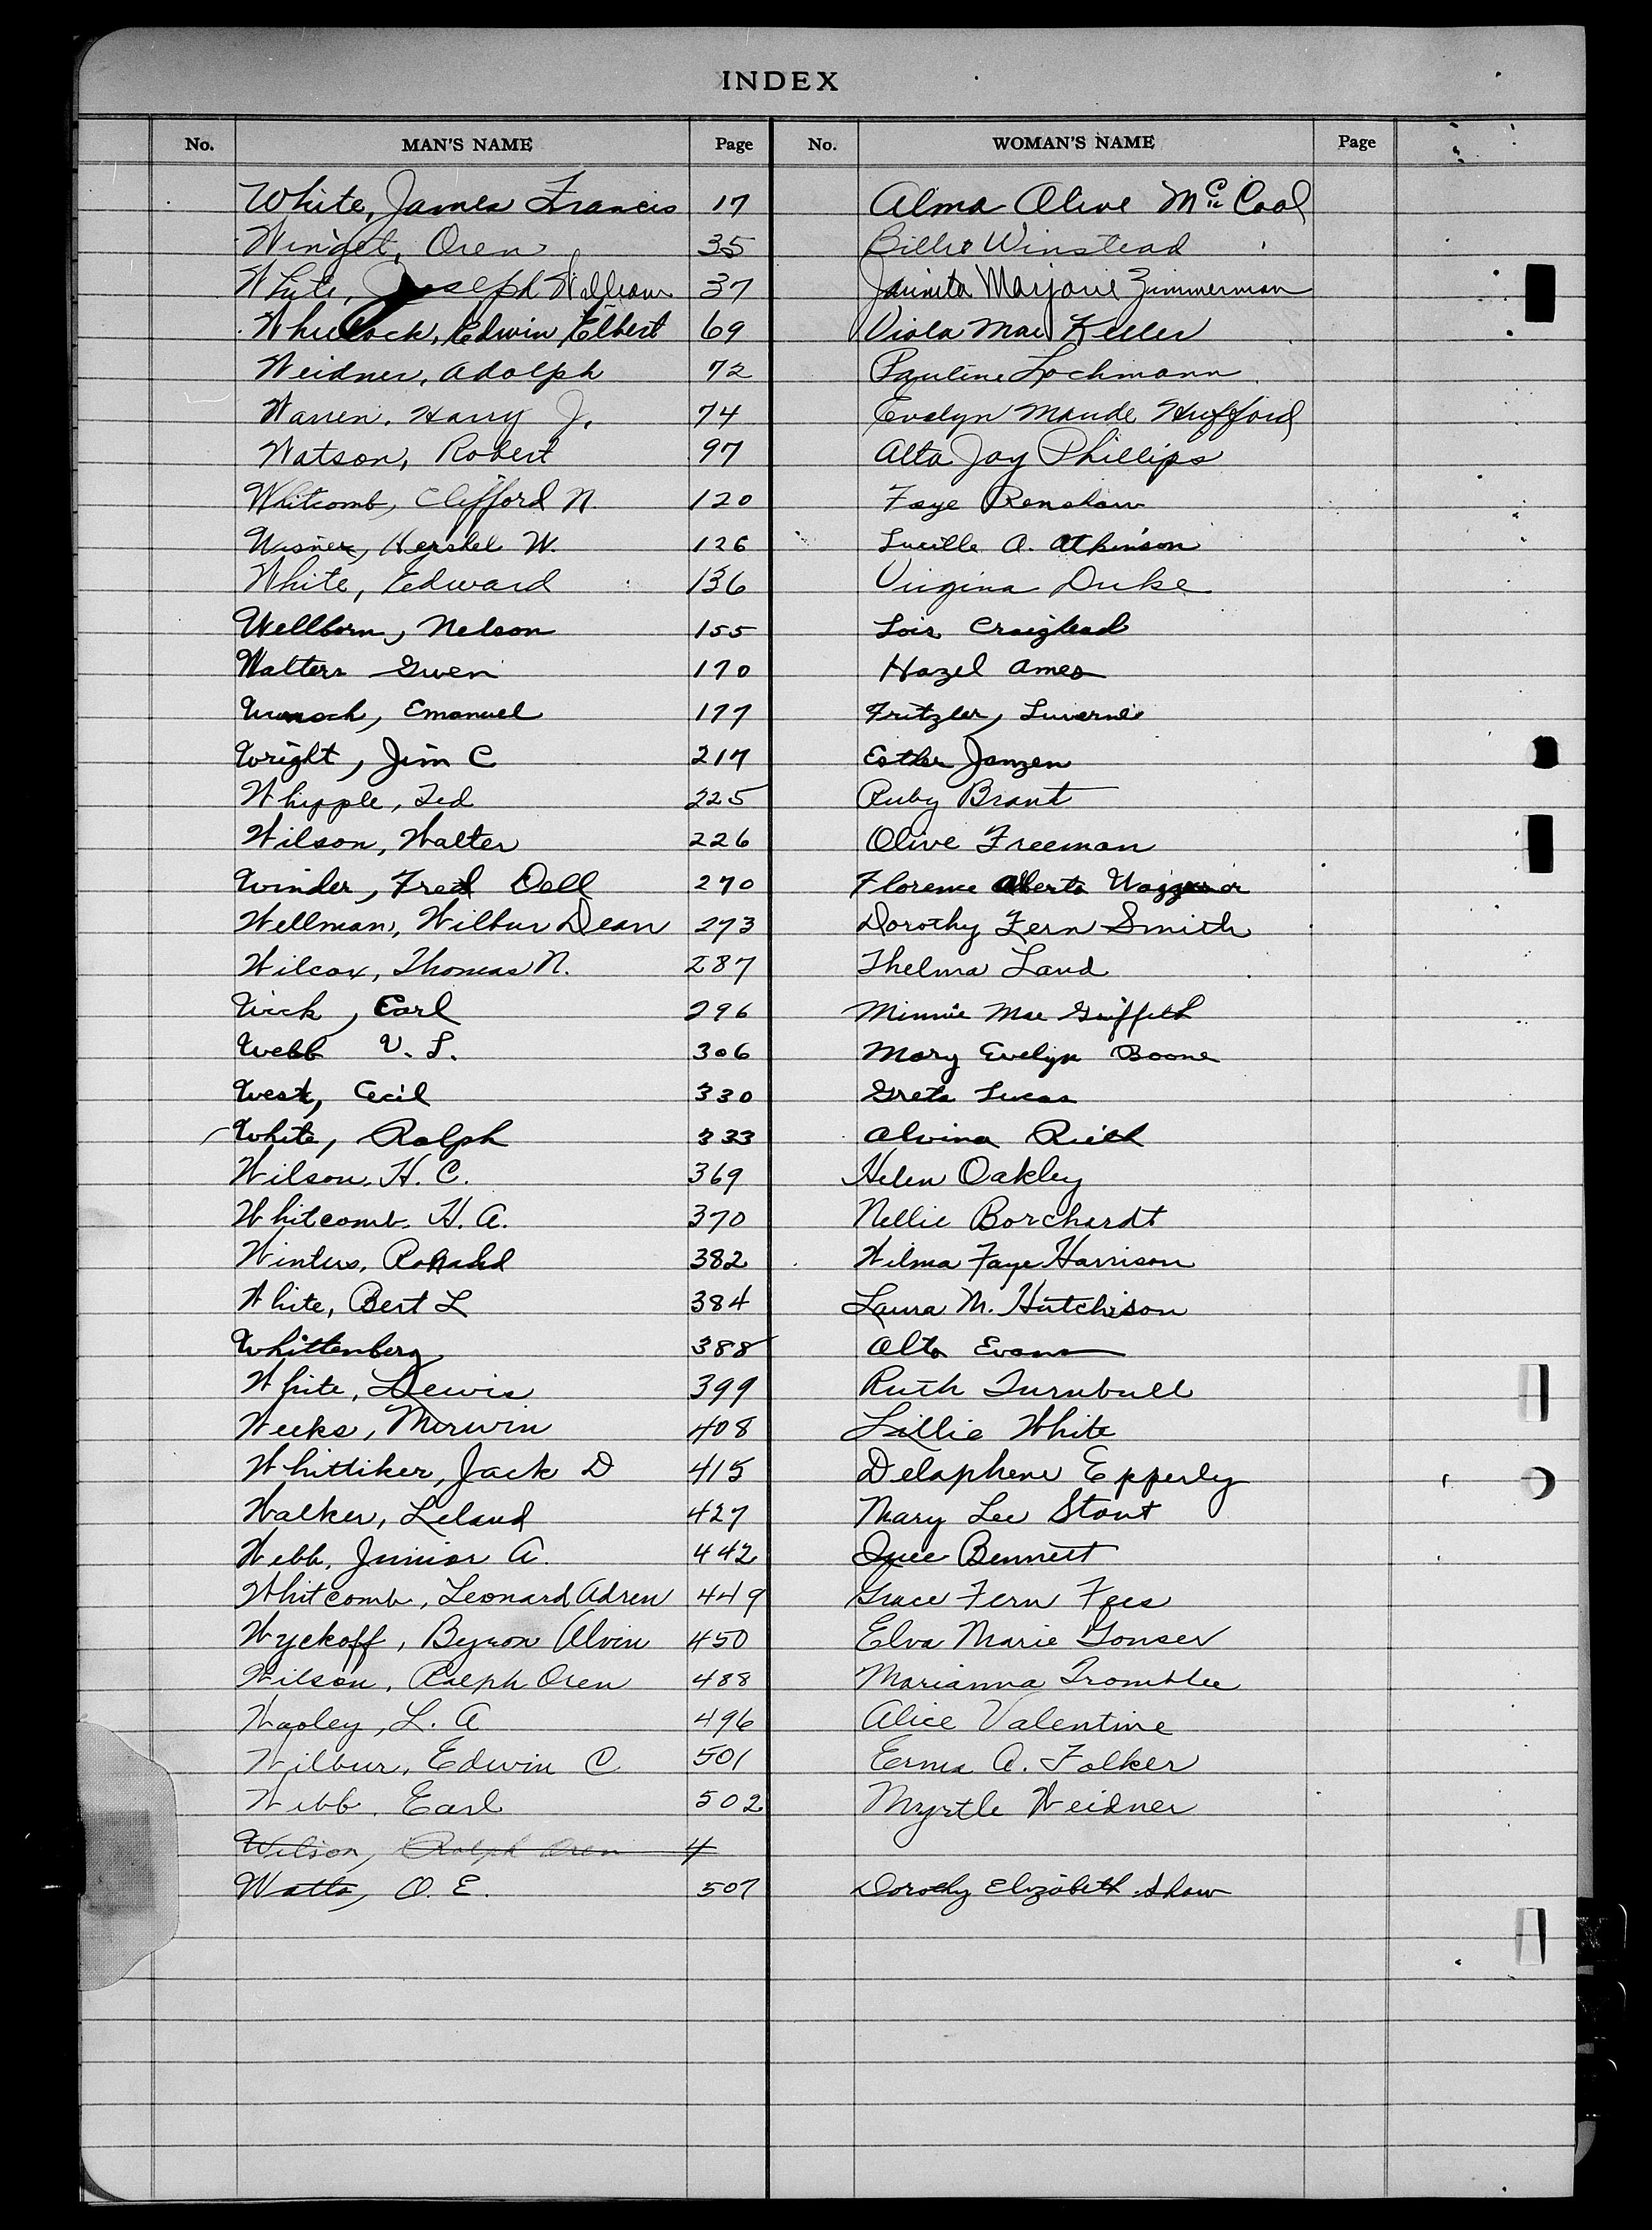 INDEX
No. MAN'S NAME Page No. WOMAN'S NAME Page
White, James Francis 17 Alma Olive McCool
Winget, Oren 35 Billie Winstead
White, Joseph William 37 Juinita Marjorie Zimmerman
Wheelock, Edwin Elbert 69 Viola Mae Keller
Weidner, Adolph 72 Pauline Lochmann
Warren, Harry J. 74 Evelyn Maude Hufford
Watson, Robert 97 Alta Joy Phillips
Whitcomb, Clifford N. 120 Faye Renshaw
Wisner, Hershel W. 126 Lucille A. Atkinson
White, Edward 136 Virgina Duke
Wellborn, Nelson 155 Lois Craighead
Walters Gwen 170 Hazel Ames
Wunsch, Emanuel 177 Fritzler, Luverne
Wright, Jim C 217 Esther Janzen
Whipple, Ted 225 Ruby Brant
Wilson, Walter 226 Olive Freeman
Winder, Fred Dell 270 Florence Alberta Waggoner
Wellman, Wilbur Dean 273 Dorothy Fern Smith
Wilcox, Thomas N. 287 Thelma Land
Wick, Earl 296 Minnie Mae Griffith
Webb V. L. 306 Mary Evelyn Boone
West, Cecil 330 Greta Lucas
White, Ralph 333 Alvina Rieth
Wilson, H. C. 369 Helen Oakley
Whitcomb, H. A. 370 Nellie Borchardt
Winters, Ronald 382 Wilma Faye Harrison
White, Bert L 384 Laura M. Hutchison
Whittenberg 388 Alta Evans
White, Lewis 399 Ruth Turnbull
Weeks, Merwin 408 Lillie White
Whittiker, Jack D 415 Delaphene Epperly
Walker, Leland 427 Mary Lee Stout
Webb, Junior A. 442 Bennett
Whitcomb, Leonard Adren 449 Grace Fern Fees
Wyckoff, Byron Alvin 450 Elva Marie Gonser
Wilson, Ralph Oren 488 Marianna Tromblee
Wapley, L. A 496 Alice Valentine
Wilbur, Edwin C 501 Erma A. Folker
Webb, Earl 502 Myrtle Weidner
Wilson, Ralph Oren 4
Watts, O. E. 507 Dorothy Elizabeth Shaw